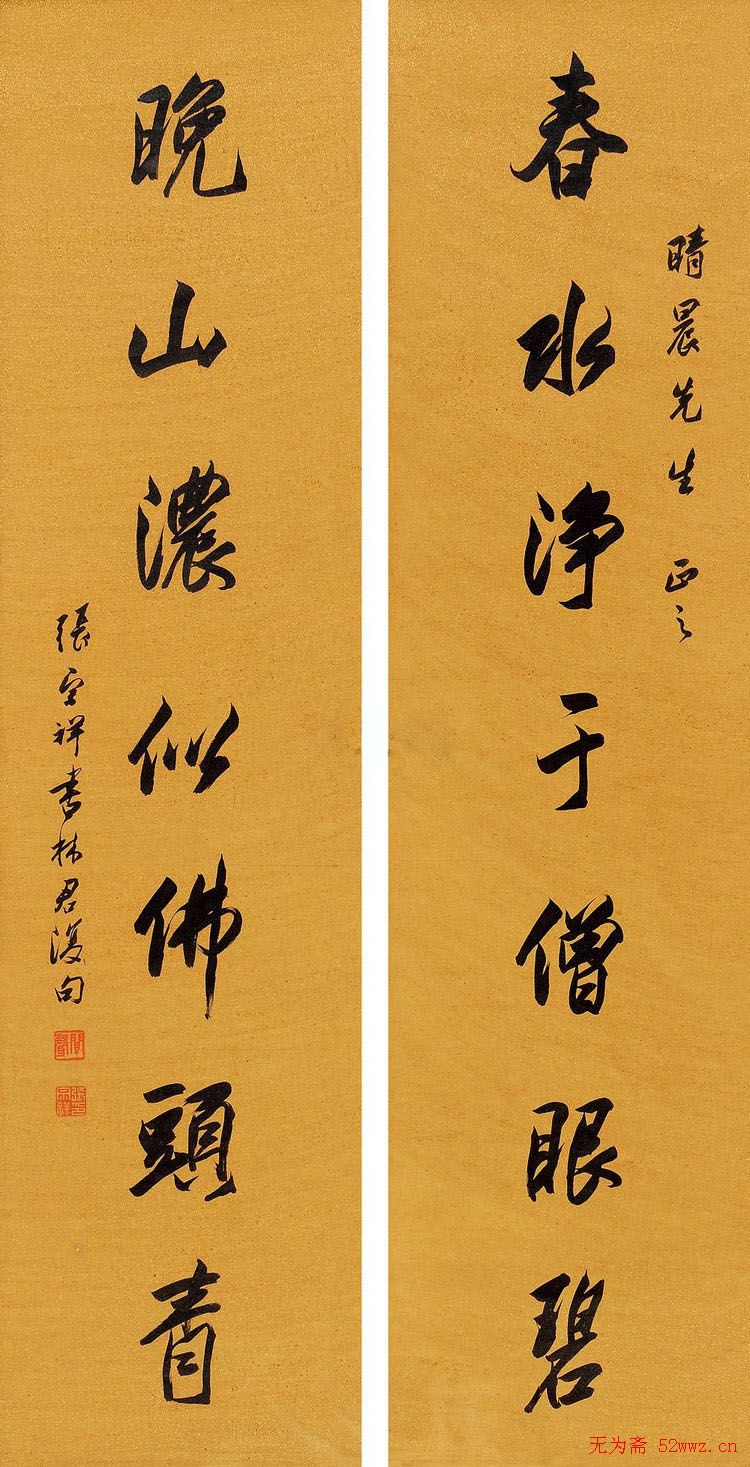 晴晨先生 正之
春水浄于僧眼碧
晚山濃似佛頭青
張宗祥書林君復句
无为斋 52wwz.cn